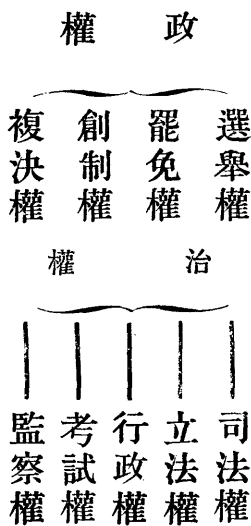 政權
選舉權
罷免權
創制權
複決權
治權
司法權
立法權
行政權
考試權
監察權